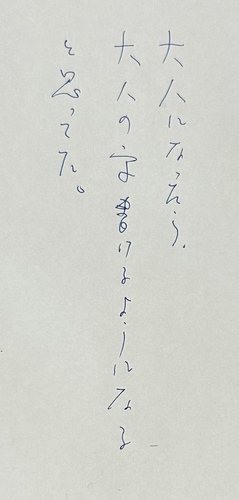 大人になったら、
大人の字書けるようになる
と思ってた。